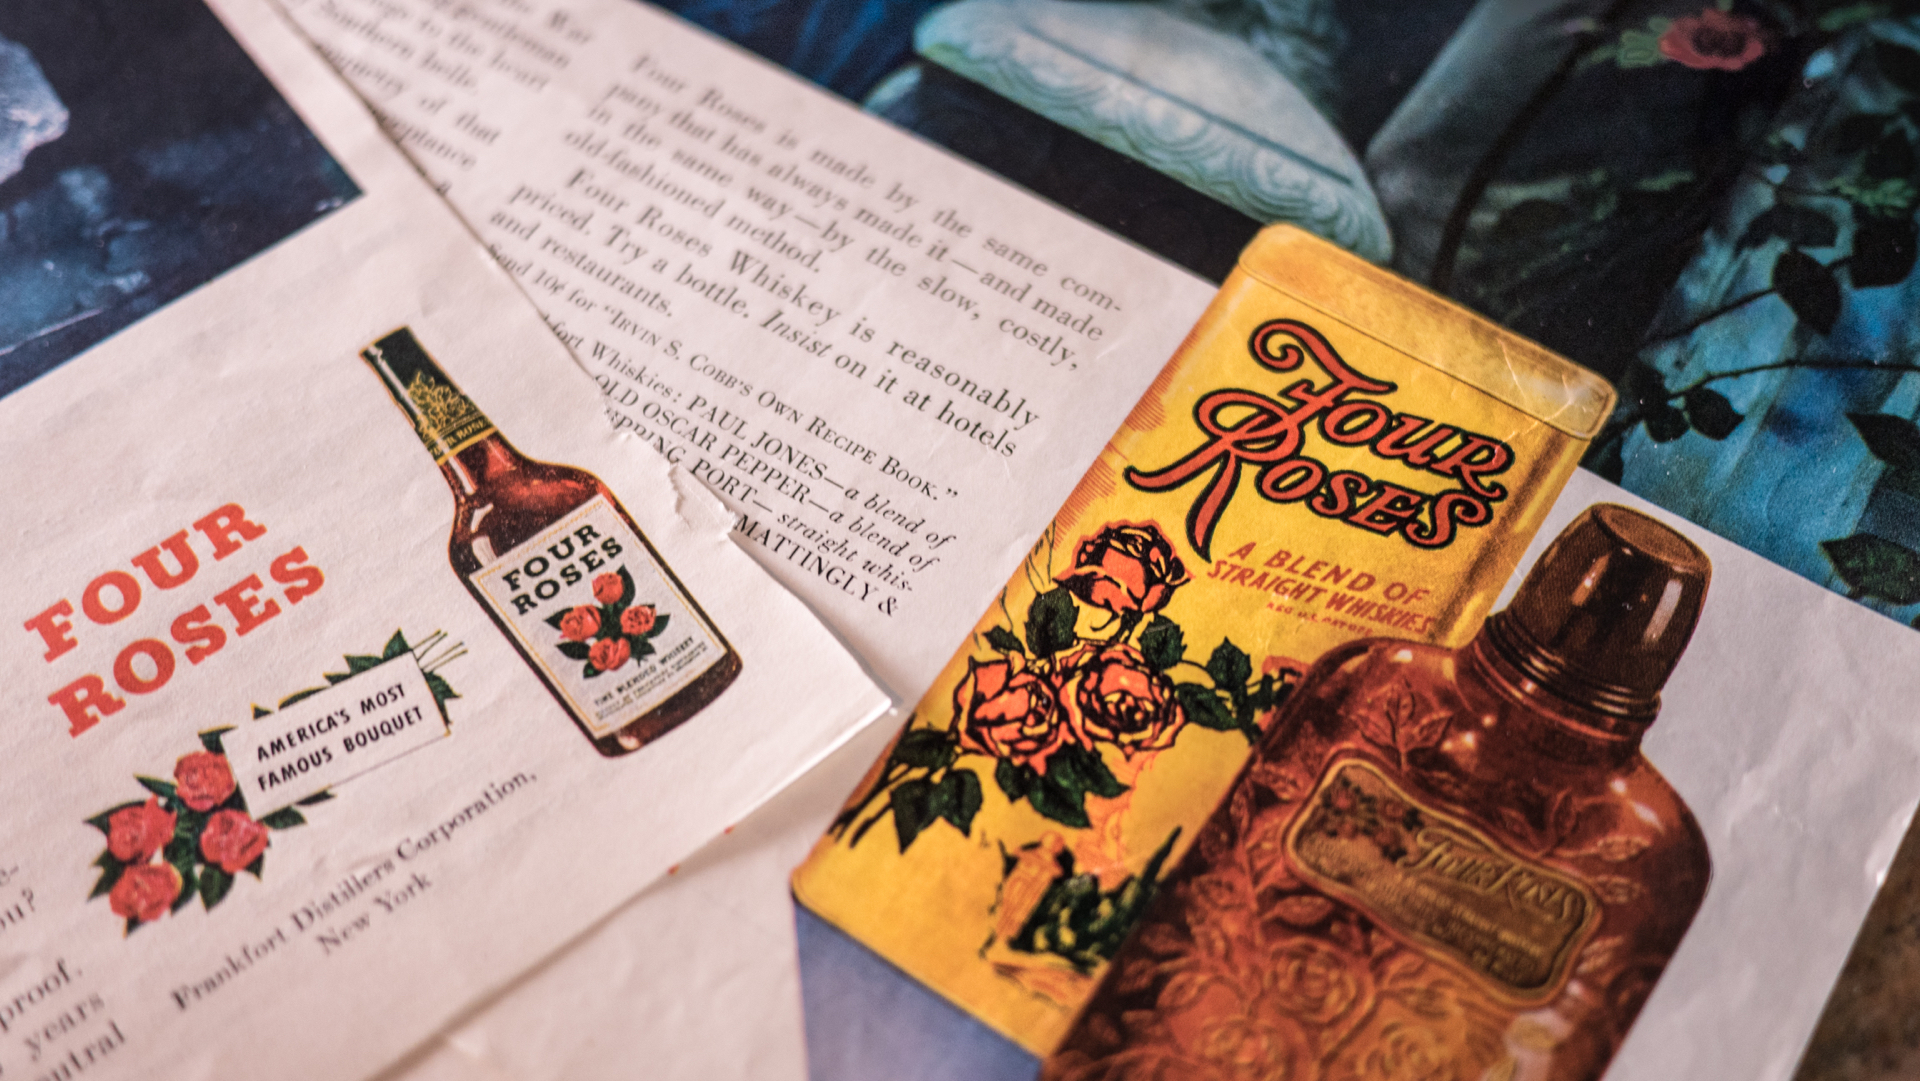 the War
gentleman
to the heart
Southern belle.
of that
a
Four Roses is made by the same com-
pany that has always made it—and made
in the same way—by the slow, costly,
old-fashioned method.
Four Roses Whiskey is reasonably
priced. Try a bottle. Insist on it at hotels
and restaurants.
Send 10¢ for "IRVIN S. COBB'S OWN RECIPE BOOK."
Whiskies: PAUL JONES—a blend of
OLD OSCAR PEPPER—a blend of
PORT—straight whis-
MATTINGLY &
FOUR
ROSES
AMERICA'S MOST
FAMOUS BOUQUET
Frankfort Distillers Corporation,
New York
proof.
years
FOUR
ROSES
FINE BLENDED WHISKEY
Four
Roses
A BLEND OF
STRAIGHT WHISKIES
Four Roses